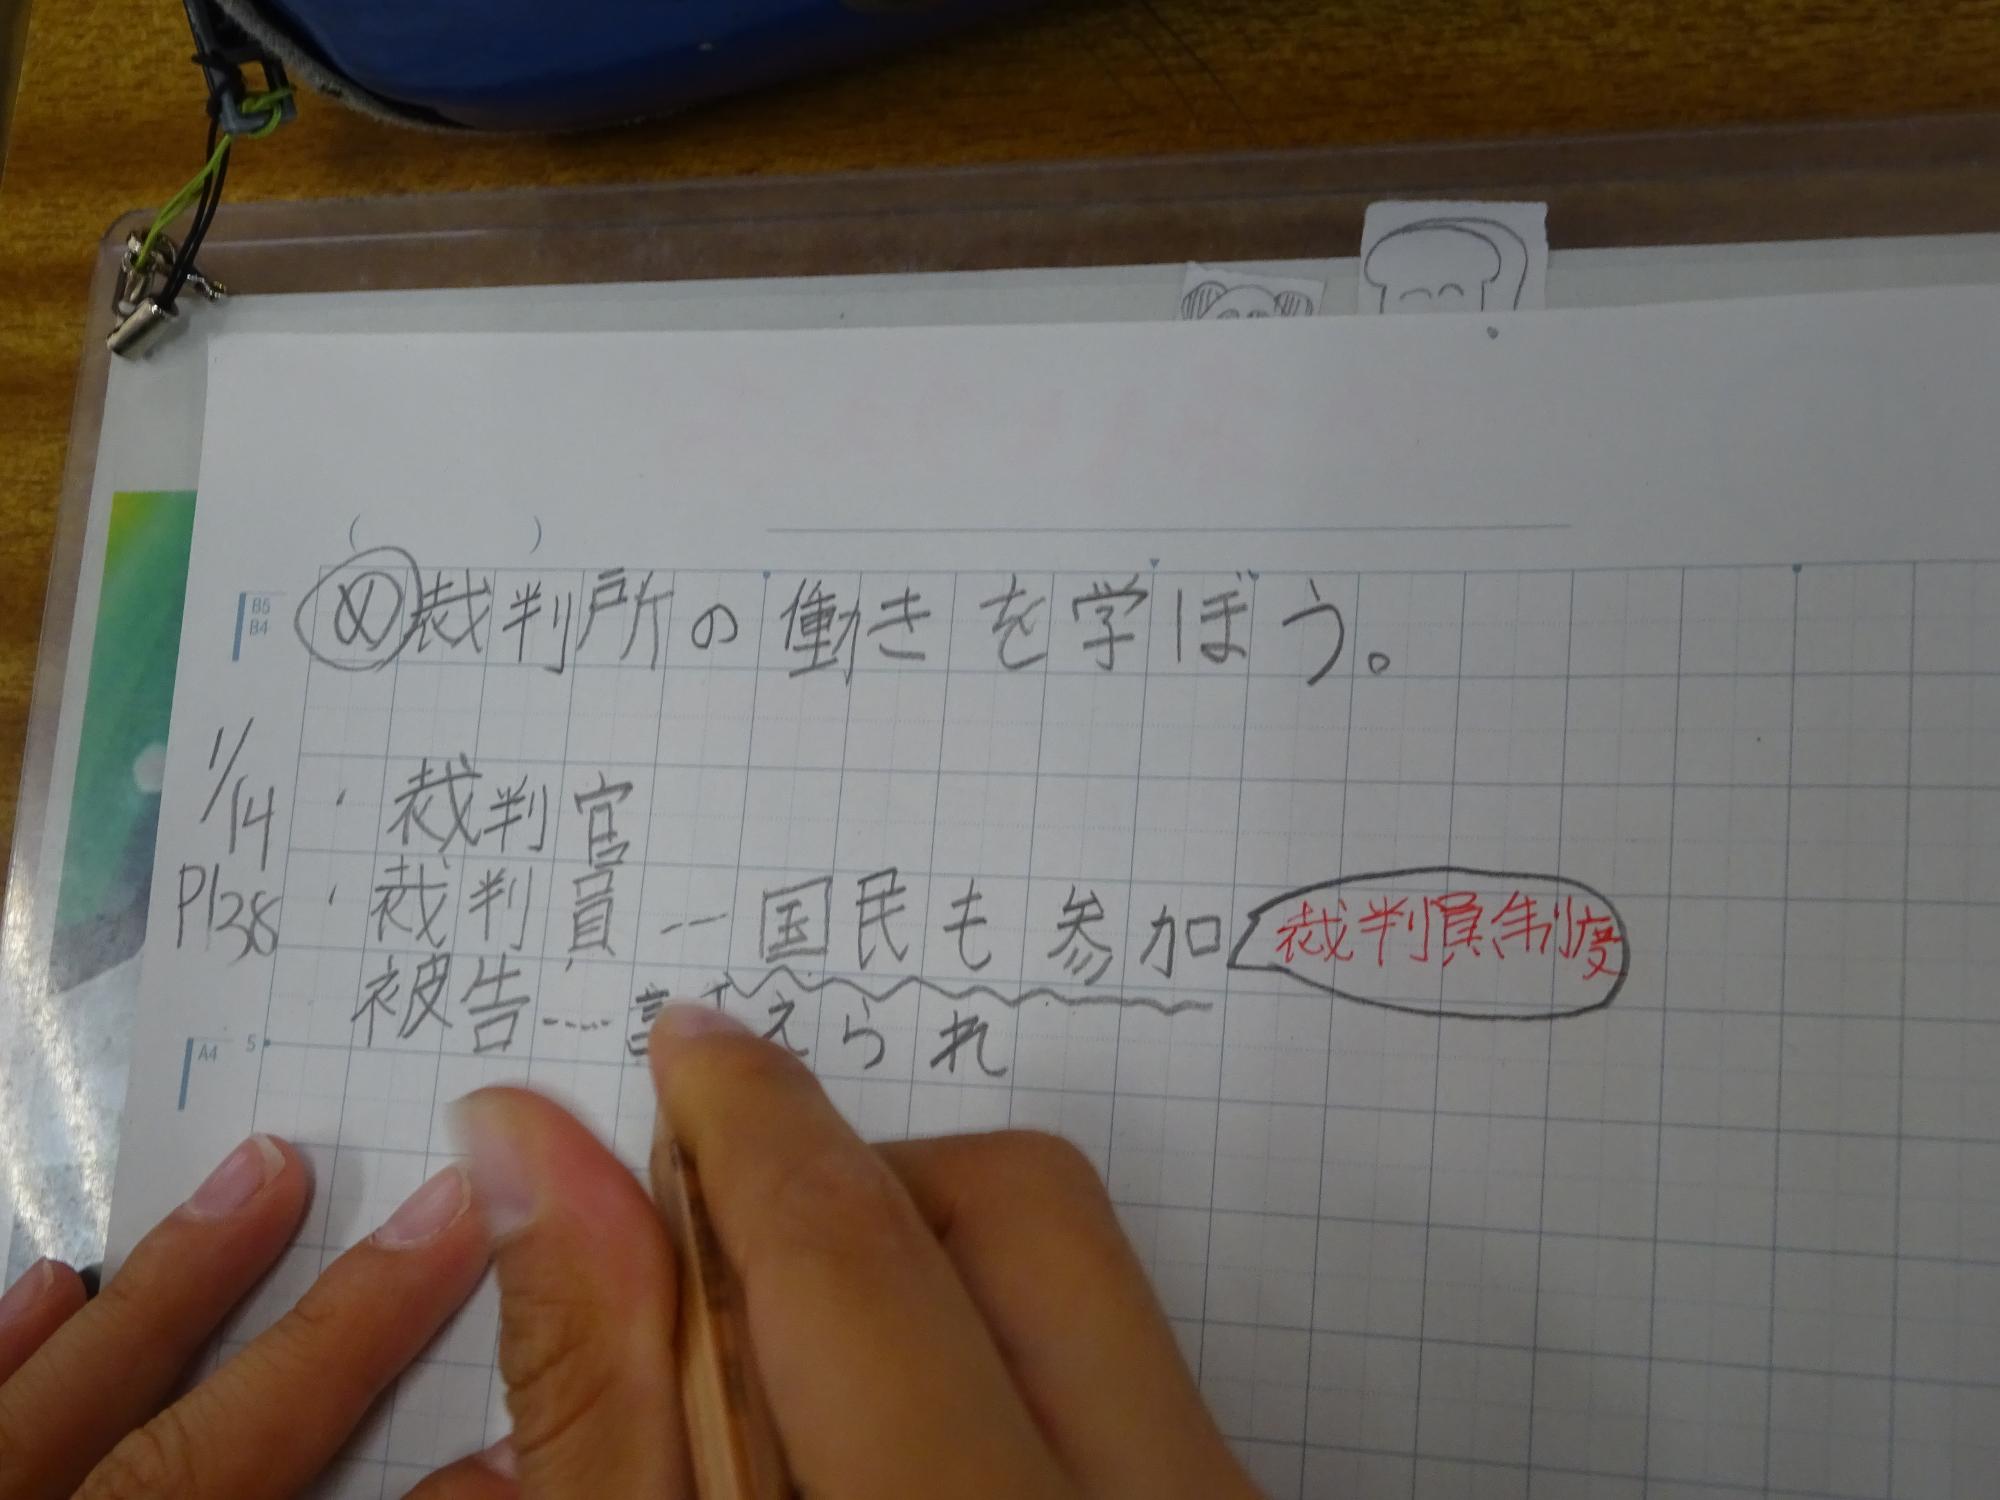 め 裁判所の働きを学ぼう。
1/14
・裁判官
P138
・裁判員…国民も参加 裁判員制度
被告……訴えられ
B5
B4
A4
5